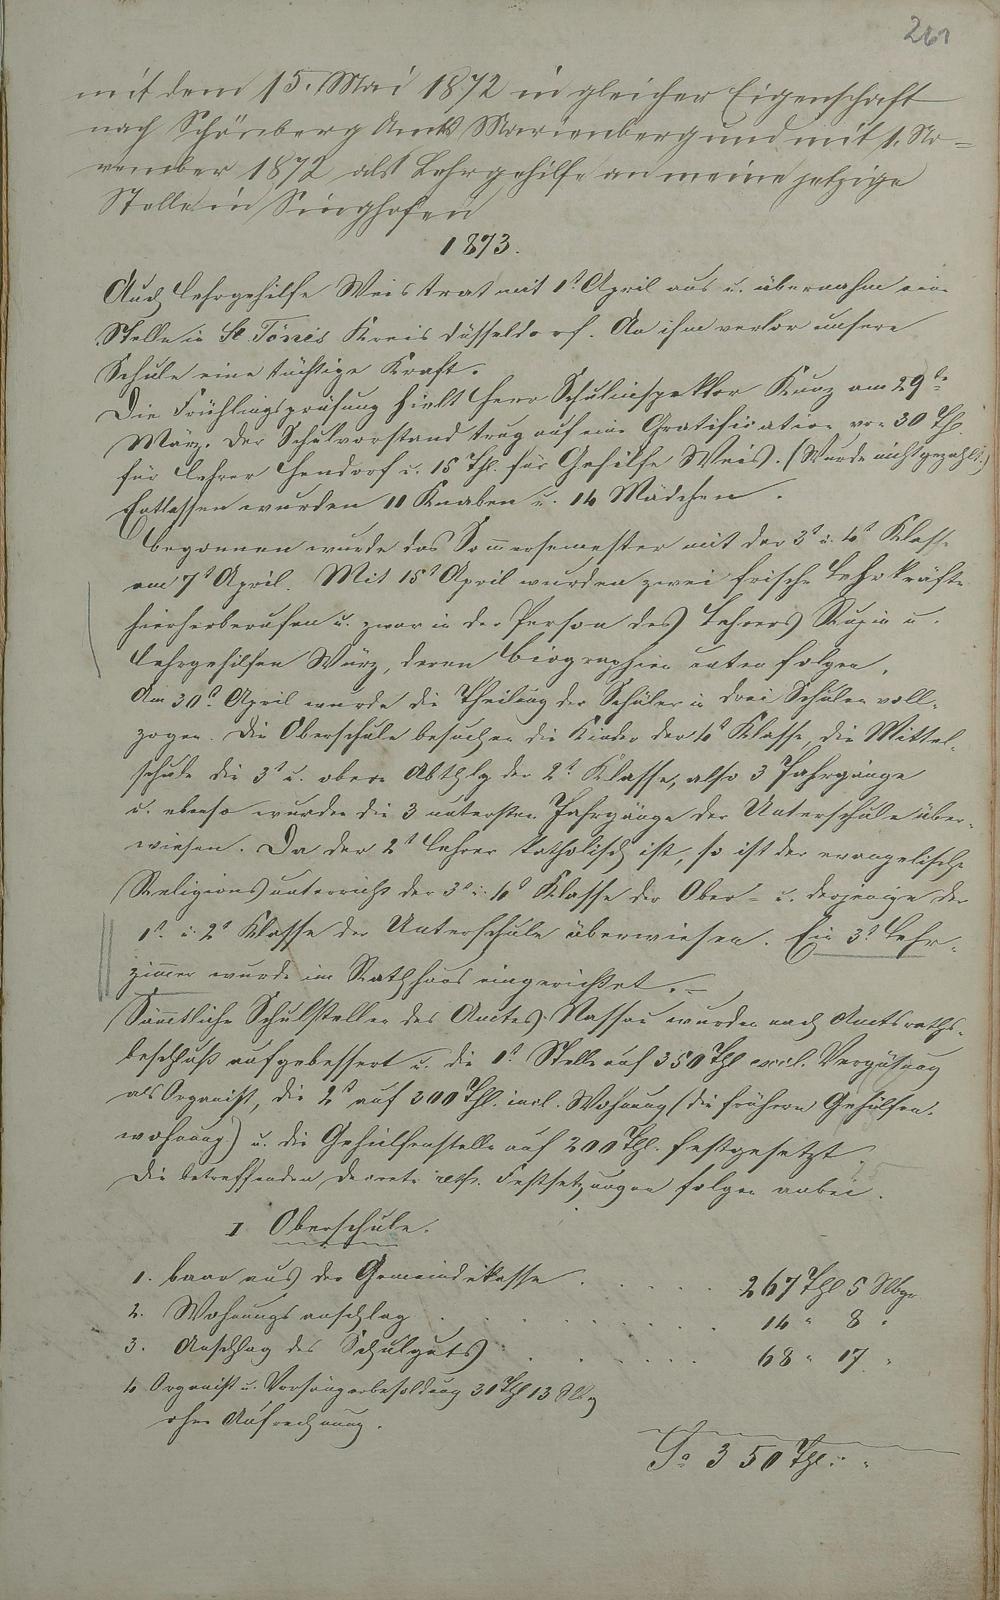 261
mit dem 15. Mai 1872 in gleicher Eigenschaft
nach Schönberg Amts Marienberg und mit 1. No-
vember 1872 als Lehrgehilfe an meine jetzige
Stelle in Singhofen
1873.
Auch Lehrgehilfe Weis trat mit 1t April aus u. übernahm eine
Stelle in St. Tönis Kreis Düsseldorf. An ihm verlor unsere
Schule eine tüchtige Kraft.
Die Frühlingsprüfung hielt Herr Schulinspektor Kunz am 29te
März. Der Schulvorstand trug auf eine Gratification von 30 Thl.
für Lehrer Hendorf u. 15 Thl. für Gehilfe Weis. (Wurde nicht gezahlt.)
Entlassen wurden 11 Knaben u. 14 Mädchen.
Begonnen wurde das Som̅ersemester mit der 3t u. 4t Klasse
am 7t April. Mit 15t April wurden zwei frische Lehrkräfte
hierherberufen u. zwar in der Person des Lehrers u.
Lehrgehilfen Würz, deren Biographien unten folgen.
Am 30t April wurde die Theilung der Schüler in drei Schulen voll-
zogen. Die Oberschule besuchen die Kinder der 4t Klasse, die Mittel-
schule die 3t u. obere Abthlg der 2t Klasse, also 3 Jahrgänge
u. ebenso wurden die 3 untersten Jahrgänge der Unterschule über-
wiesen. Da der 2t Lehrer katholisch ist, so ist der evangelische
Religionsunterricht der 3t u. 4t Klasse der Ober- u. derjenige der
1t u. 2t Klasse der Unterschule überwiesen. Ein 3t Lehr-
zim̅er wurde im Rathhaus eingerichtet.-
Säm̅tliche Schulstellen des Amtes Nassau wurden nach Amtsraths-
beschluß aufgebessert u. die 1t Stelle auf 350 Thl excl. Vergütung
als Organist, die 2t auf 300 Thl. incl. Wohnung (die frühern Gehülfen-
wohnung) u. die Gehülfenstelle auf 200 Thl. festgesetzt
Die betreffenden Decrete resp. Festsetzungen folgen anbei.
I Oberschule.
1. baar aus der Gemeindekasse . . . . 267 Thl 5 Slbgr
2. Wohnungsanschlag . . . . . . . 14 " 8 "
3. Anschlag des Schulguts . . . . . . 68 " 17 "
4 Organist u. Vorsängerbesoldung 31 Thl 13 Slbg
ohne Aufrechnung.
Sa 350 Thl. " "